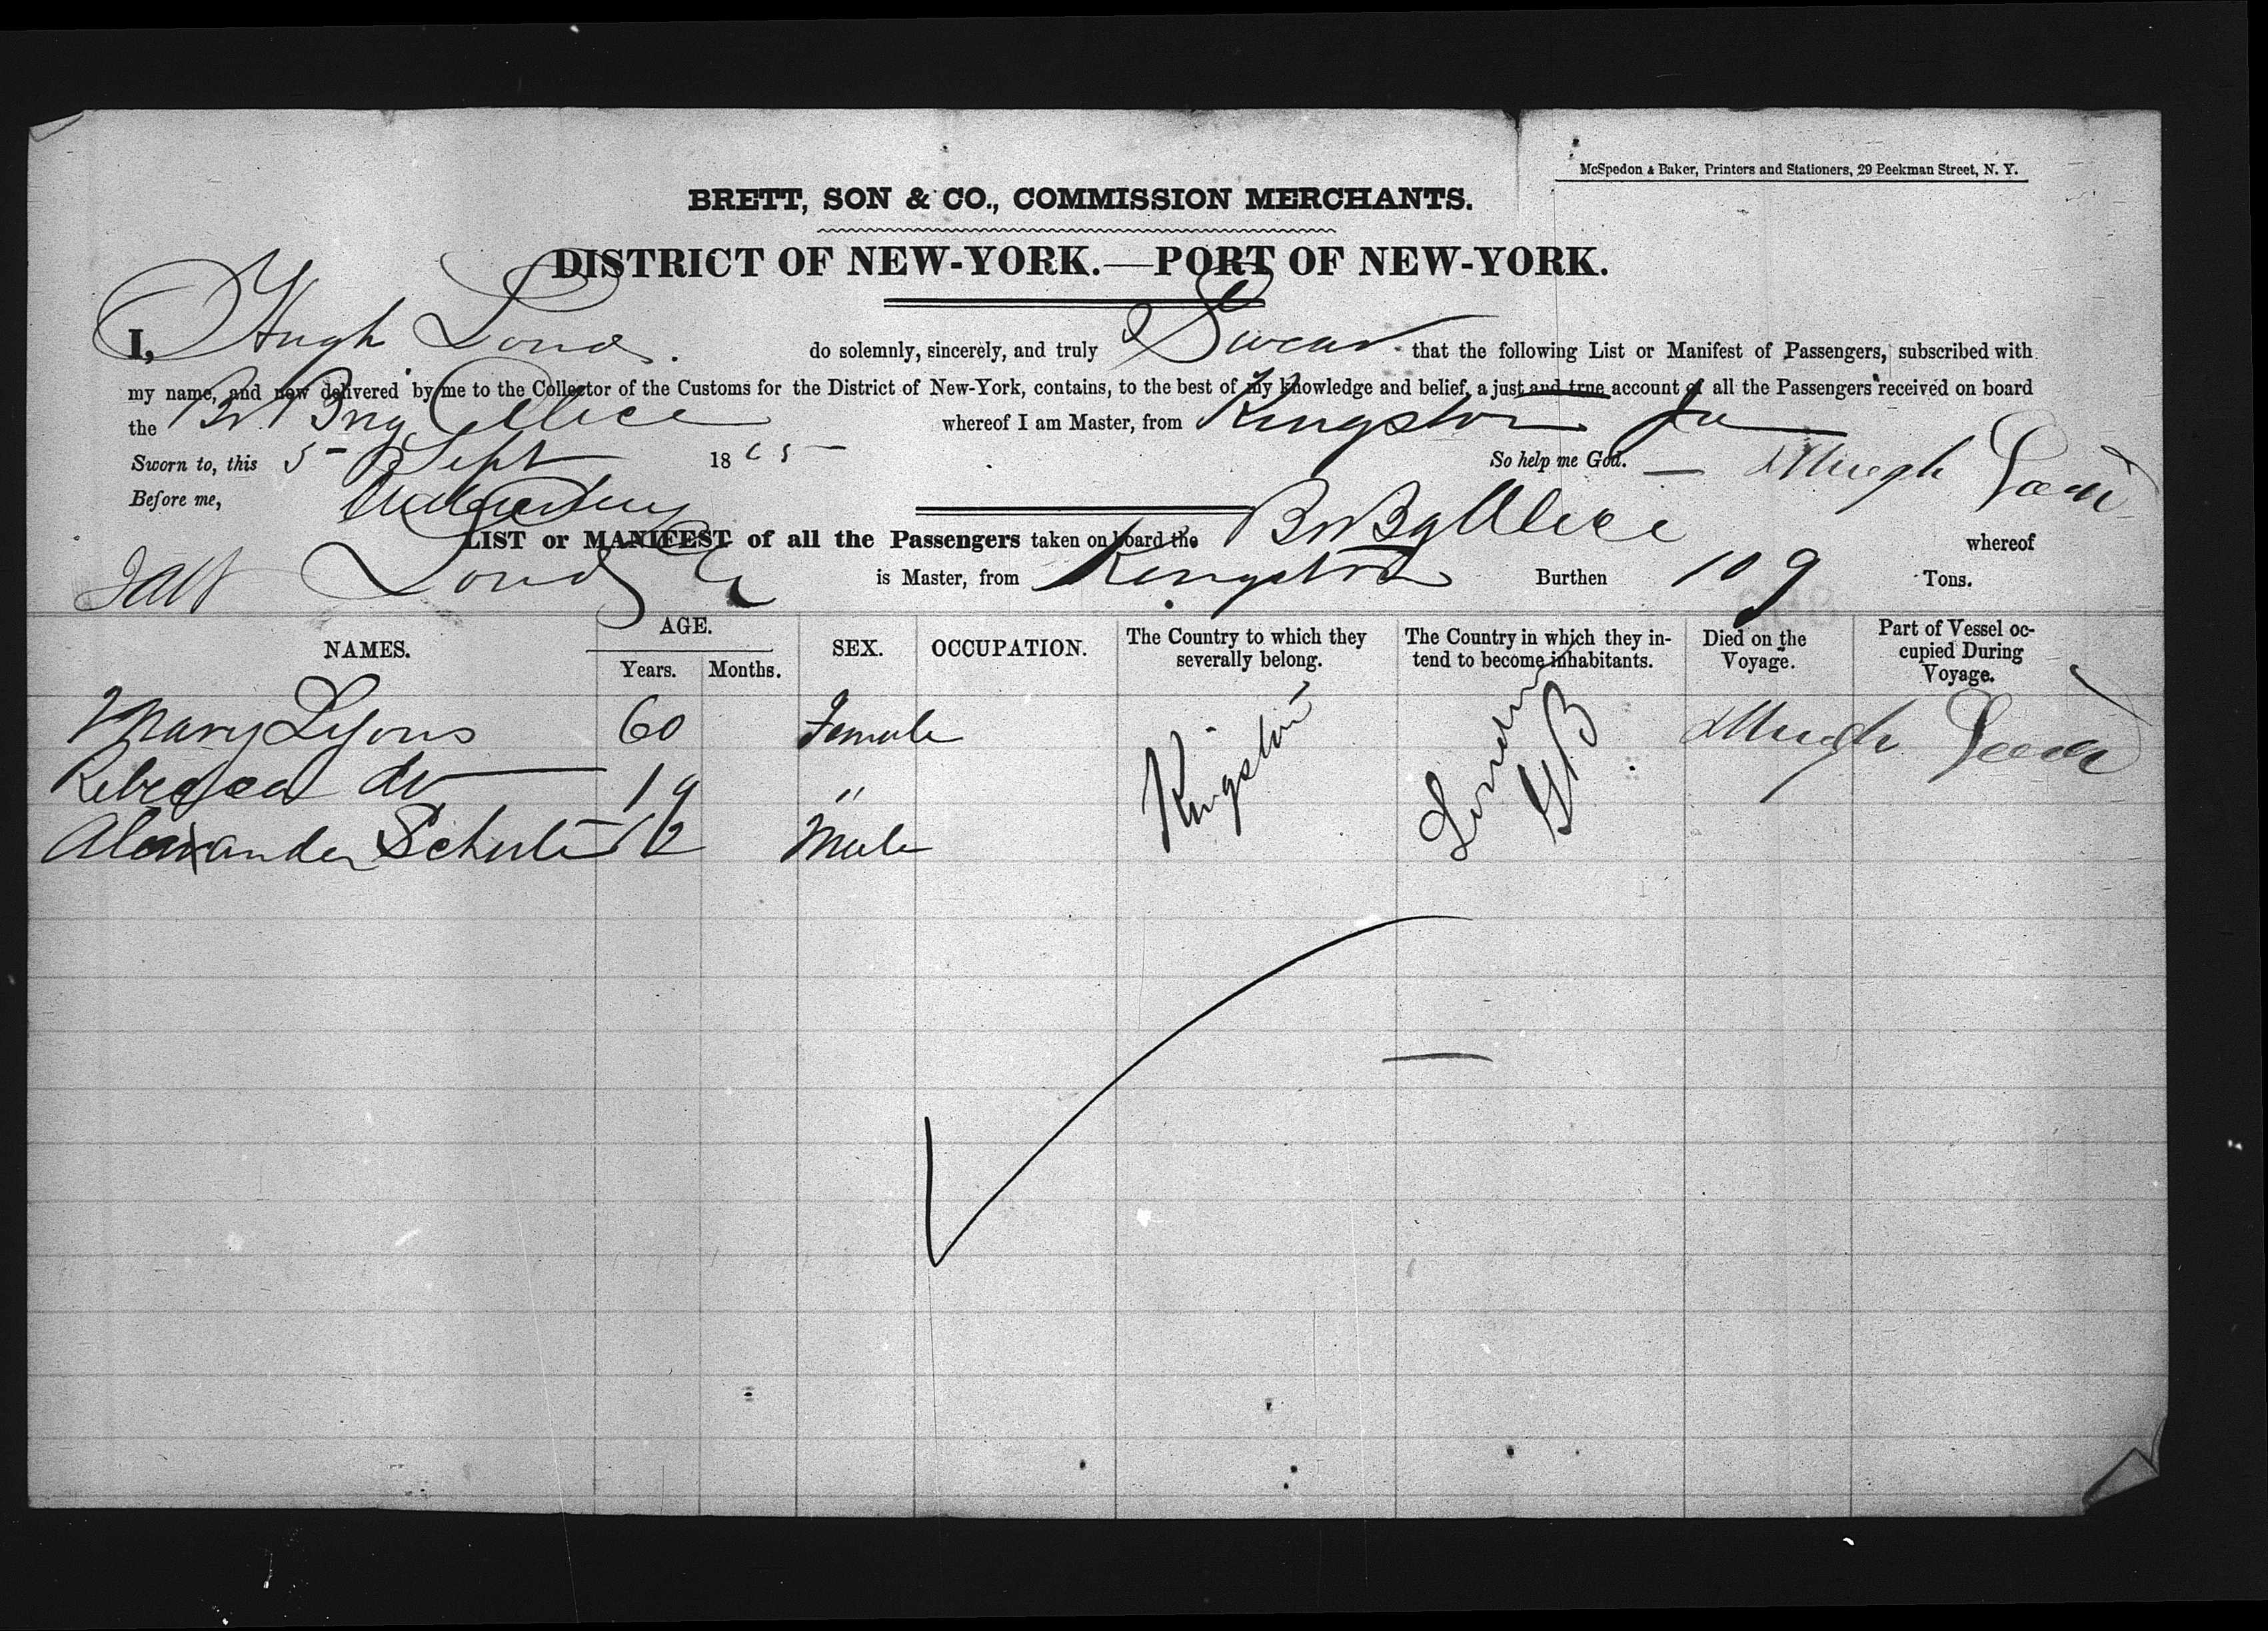 McSpedon & Baker, Printers and Stationers, 29 Beekman Street, N. Y.
BRETT, SON & CO., COMMISSION MERCHANTS.
DISTRICT OF NEW-YORK.—PORT OF NEW-YORK.
I, Hugh do solemnly, sincerely, and truly Swear that the following List or Manifest of Passengers, subscribed with
my name, and now delivered by me to the Collector of the Customs for the District of New-York, contains, to the best of my knowledge and belief, a just and true account of all the Passengers received on board
the Br. Brig Alice whereof I am Master, from Kingston Ja
Sworn to, this 5 Sept 1865 So help me God. Hugh
Before me,
LIST or MANIFEST of all the Passengers taken on board the Br Bg Alice whereof
is Master, from Kingston Burthen 109 Tons.
NAMES. AGE. Years. Months. SEX. OCCUPATION. The Country to which they severally belong. The Country in which they intend to become inhabitants. Died on the Voyage. Part of Vessel occupied During Voyage.
Mary Lyons 60 Female Kingston London GB Hugh
Rebecca do 19 "
Alexander 12 Male